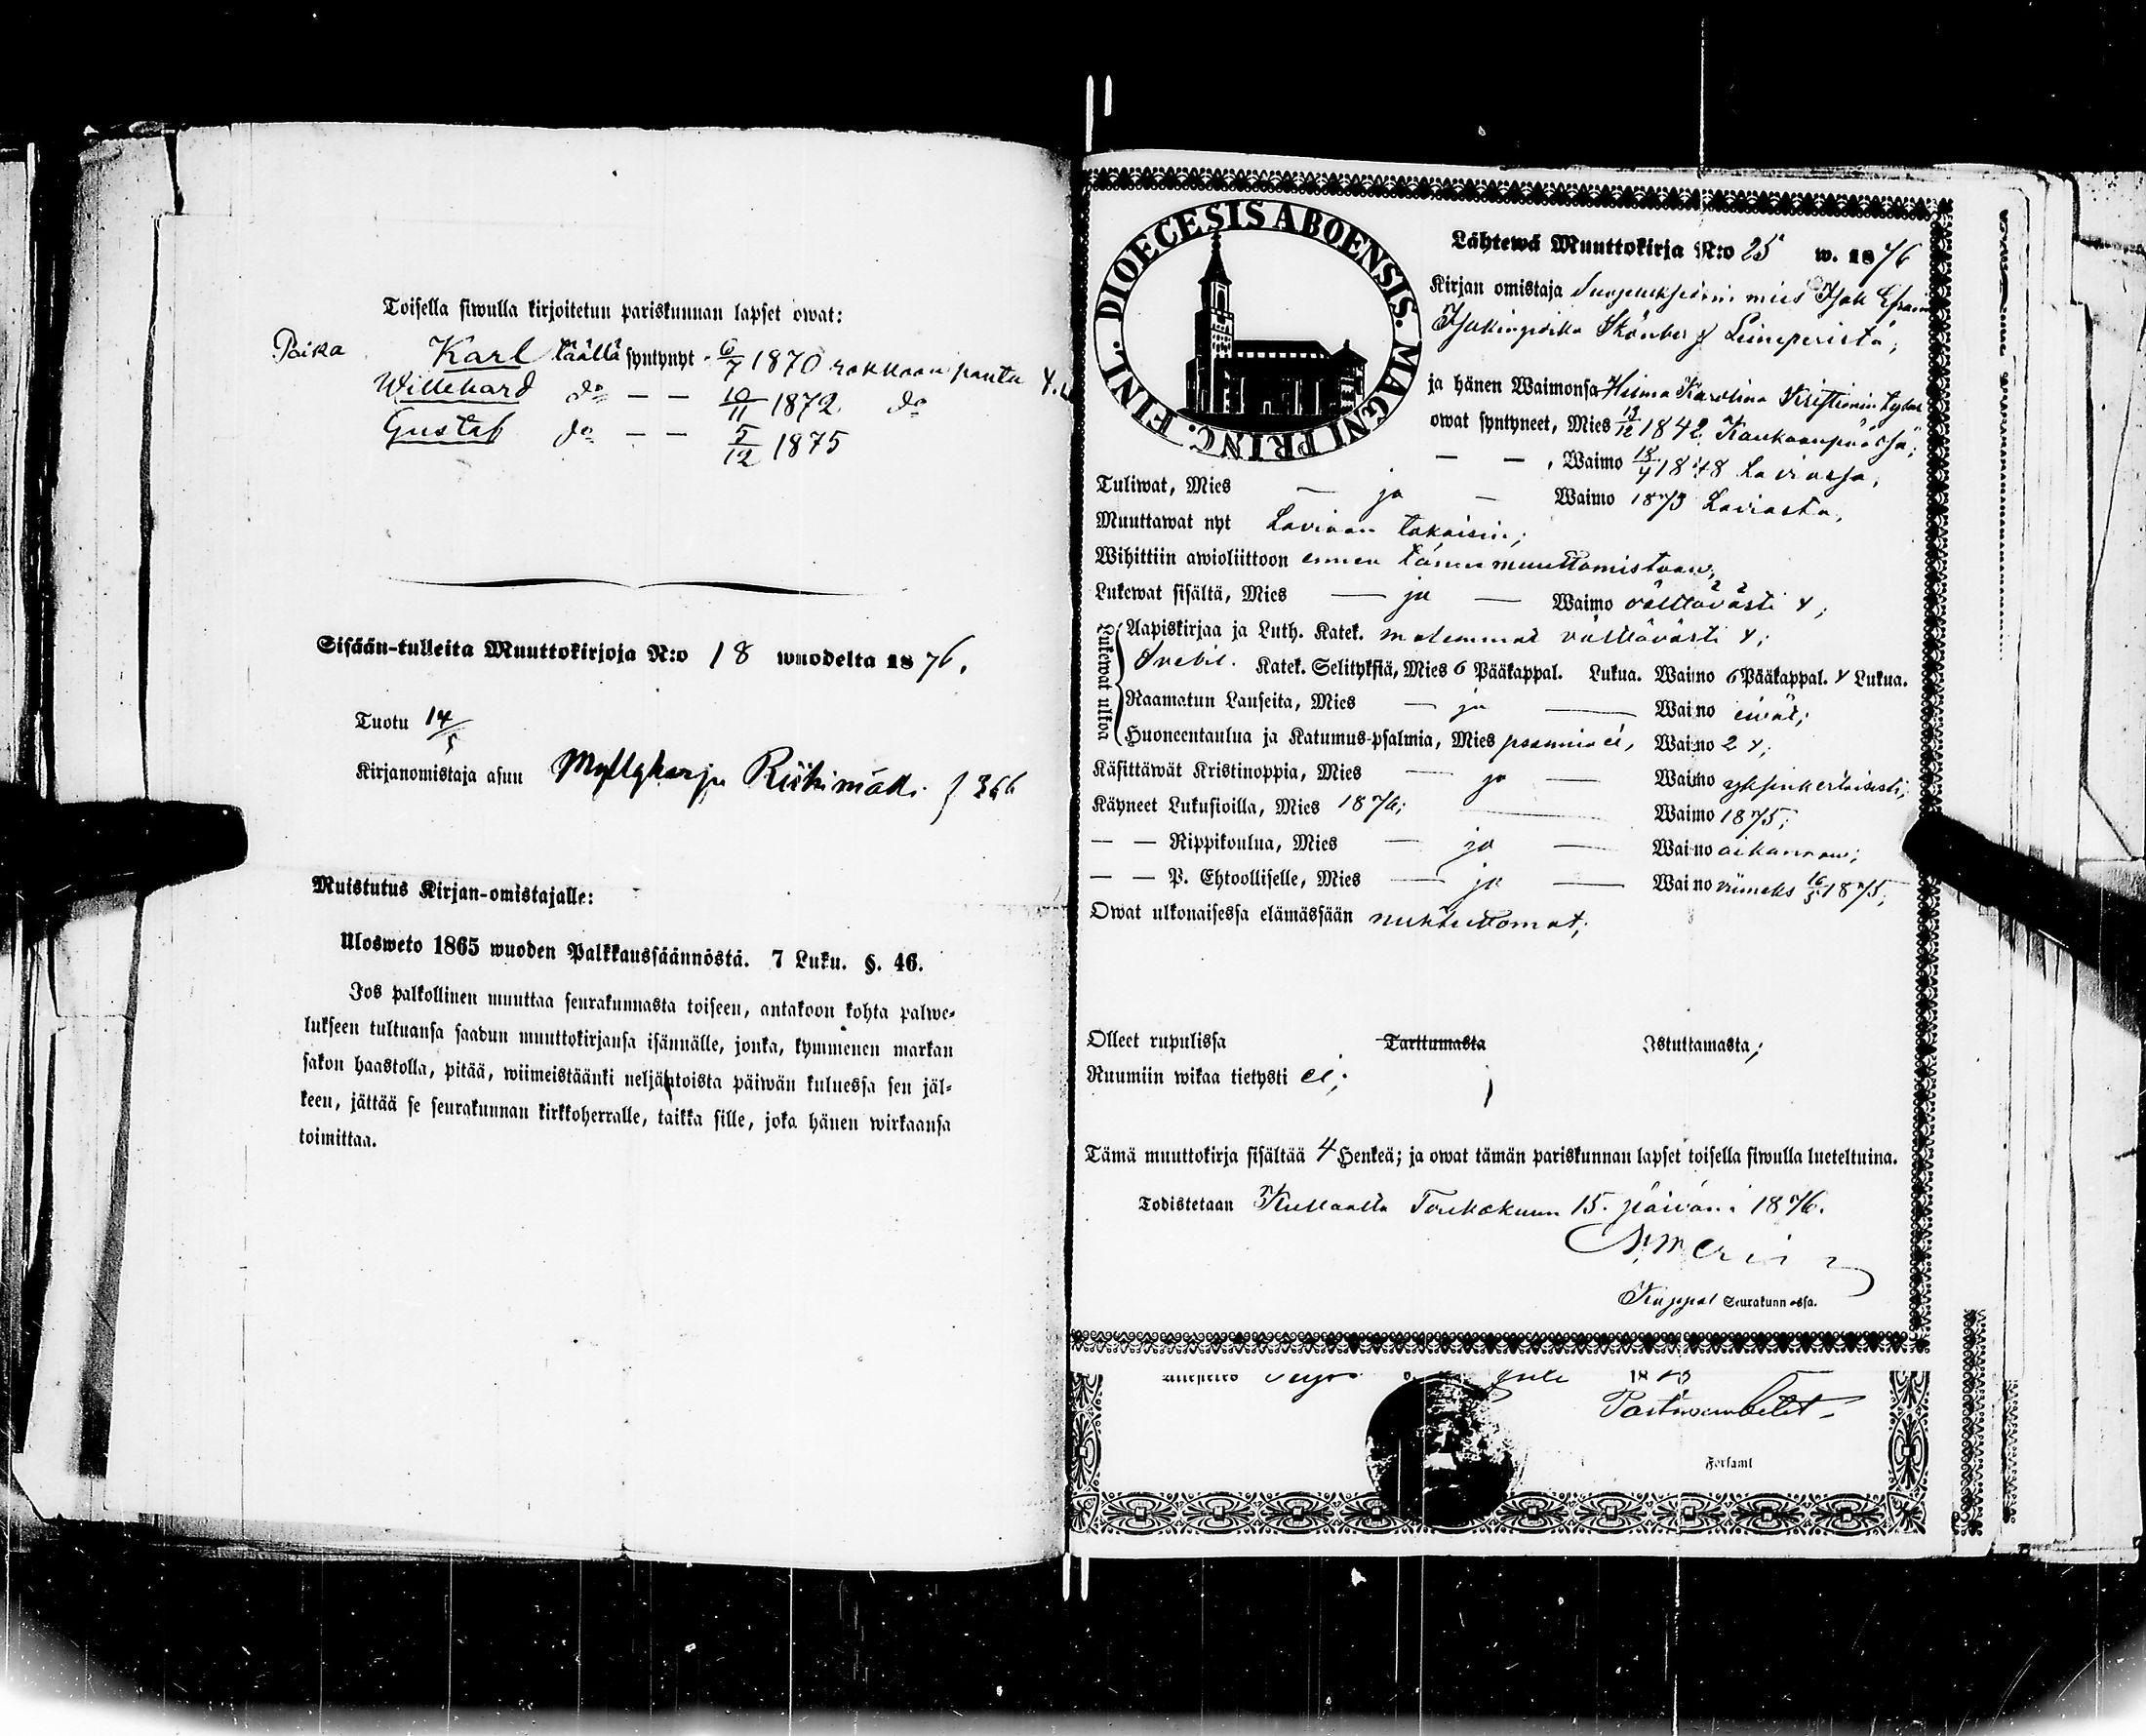 Toisella siwulla kirjoitetun pariskunnan lapset owat:
Poika Karl täällä syntynyt 6/7 1870 rokkoon pantu
Willehard do — — 10/11 1872 do
Gustaf do — — 5/12 1875
Sisään-tulleita Muuttokirjoja N:o 18 wuodelta 1876.
Tuotu 14/5
Kirjanomistaja asuu Myllykarju Riihimäki 366
Muistutus Kirjan-omistajalle:
Ulosweto 1865 wuoden Palkkaussäännöstä. 7 Luku. §. 46.
Jos palkollinen muuttaa seurakunnasta toiseen, antakoon kohta palwe-
lukseen tultuansa saadun muuttokirjansa isännälle, jonka, kymmenen markan
sakon haastolla, pitää, wiimeistäänki neljäntoista päiwän kuluessa sen jäl-
keen, jättää se seurakunnan kirkkoherralle, taikka sille, joka hänen wirkaansa
toimittaa.
DIOECESIS ABOENSIS. MAGNI PRINC. FINL.
Lähtewä Muuttokirja N:o 25 w. 1876
Kirjan omistaja mies Isak Efraim
Skönberg Leineperistä;
ja hänen Waimonsa Hilma Karolina Kristianin tytär
owat syntyneet, Mies 13/12 1842 Kankaanpäässä;
— — , Waimo 18/4 1848 Laviassa;
Tuliwat, Mies — ja — Waimo 1873 Laviasta,
Muuttawat nyt Laviaan takaisin;
Wihittiin awioliittoon ennen tänne muuttamistaan;
Lukewat sisältä, Mies — ja — Waimo välttävästi x;
Lukewat ulkoa
Aapiskirjaa ja Luth. Katek. molemmat välttävästi x;
Svebil. Katek. Selityksiä, Mies 6 Pääkappal. Lukua. Waimo 6 Pääkappal. x Lukua.
Raamatun Lauseita, Mies — ja — Waimo eivät;
Huoneentaulua ja Katumus-psalmia, Mies psalmia ei, Waimo 2 x;
Käsittäwät Kristinoppia, Mies — ja — Waimo yksinkertaisesti;
Käyneet Lukusioilla, Mies 1876; — Waimo 1875;
— — Rippikoulua, Mies — ja — Waimo aikanaan;
— — P. Ehtoolliselle, Mies — ja — Waimo viimeks 16/5 1875;
Owat ulkonaisessa elämässään nuhteettomat;
Olleet rupulissa Tarttumasta Istuttamasta;
Ruumiin wikaa tietysti ei;
Tämä muuttokirja sisältää 4 Henkeä; ja owat tämän pariskunnan lapset toisella siwulla lueteltuina.
Todistetaan Kullaalla Toukokuun 15. päivänä 1876.
Kappal Seurakunnassa.
Juli 18
Pastorsembetet
Forsaml